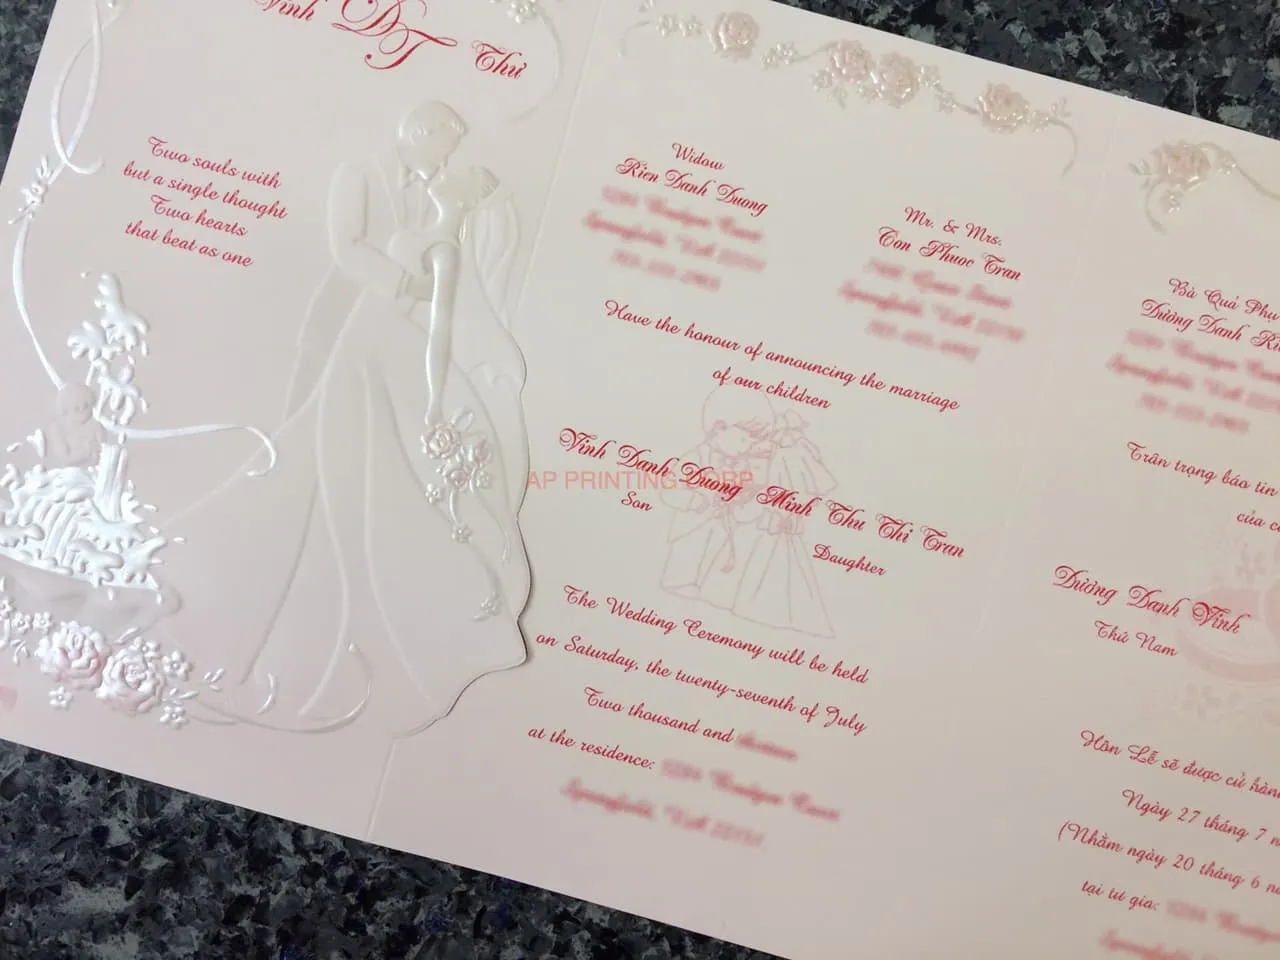 Vinh DT Thư
Two souls with
but a single thought
Two hearts
that beat as one
Widow
Rien Danh Duong
Mr. & Mrs.
Ton Phuoc Tran
Have the honour of announcing the marriage
of our children
Vinh Danh Duong Minh Thu Thi Tran
Son
Daughter
The Wedding Ceremony will be held
on Saturday, the twenty-seventh of July
Two thousand and
at the residence:
Bà Quả Phụ
Dương Danh
Trân trọng báo tin
của
Dương Danh Vinh
Thứ Nam
Hôn Lễ sẽ được cử
Ngày 27 tháng 7
(Nhằm ngày 20 tháng 6
tại tư gia:
AP PRINTING CORP